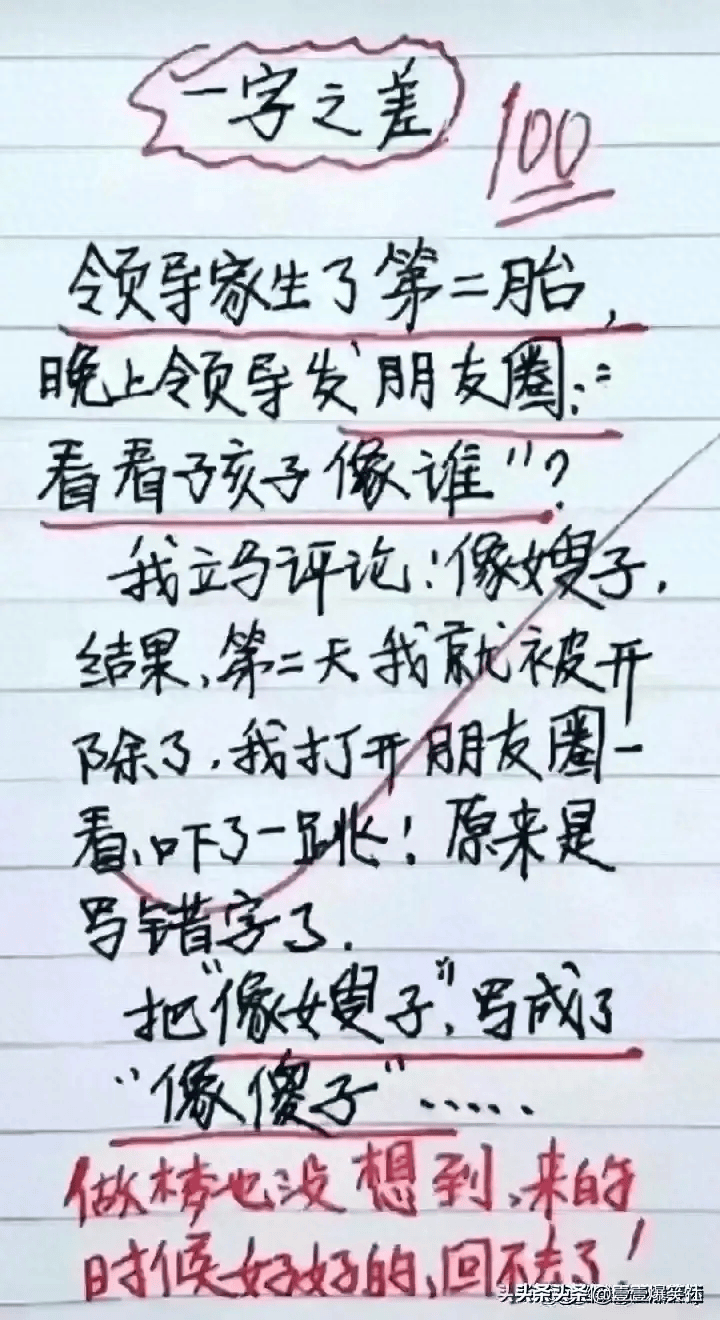 一字之差
100
领导家生了第二胎,
晚上领导发"朋友圈:=
看看孩子像谁"?
我立马评论:像嫂子,
结果、第二天我就被开
除了,我打开朋友圈一
看、吓了一跳!原来是
写错字了.
把"像嫂子",写成了
"像傻子"......
做梦也没想到、来的
时候好好的,回不去了!
@壹壹爆笑社